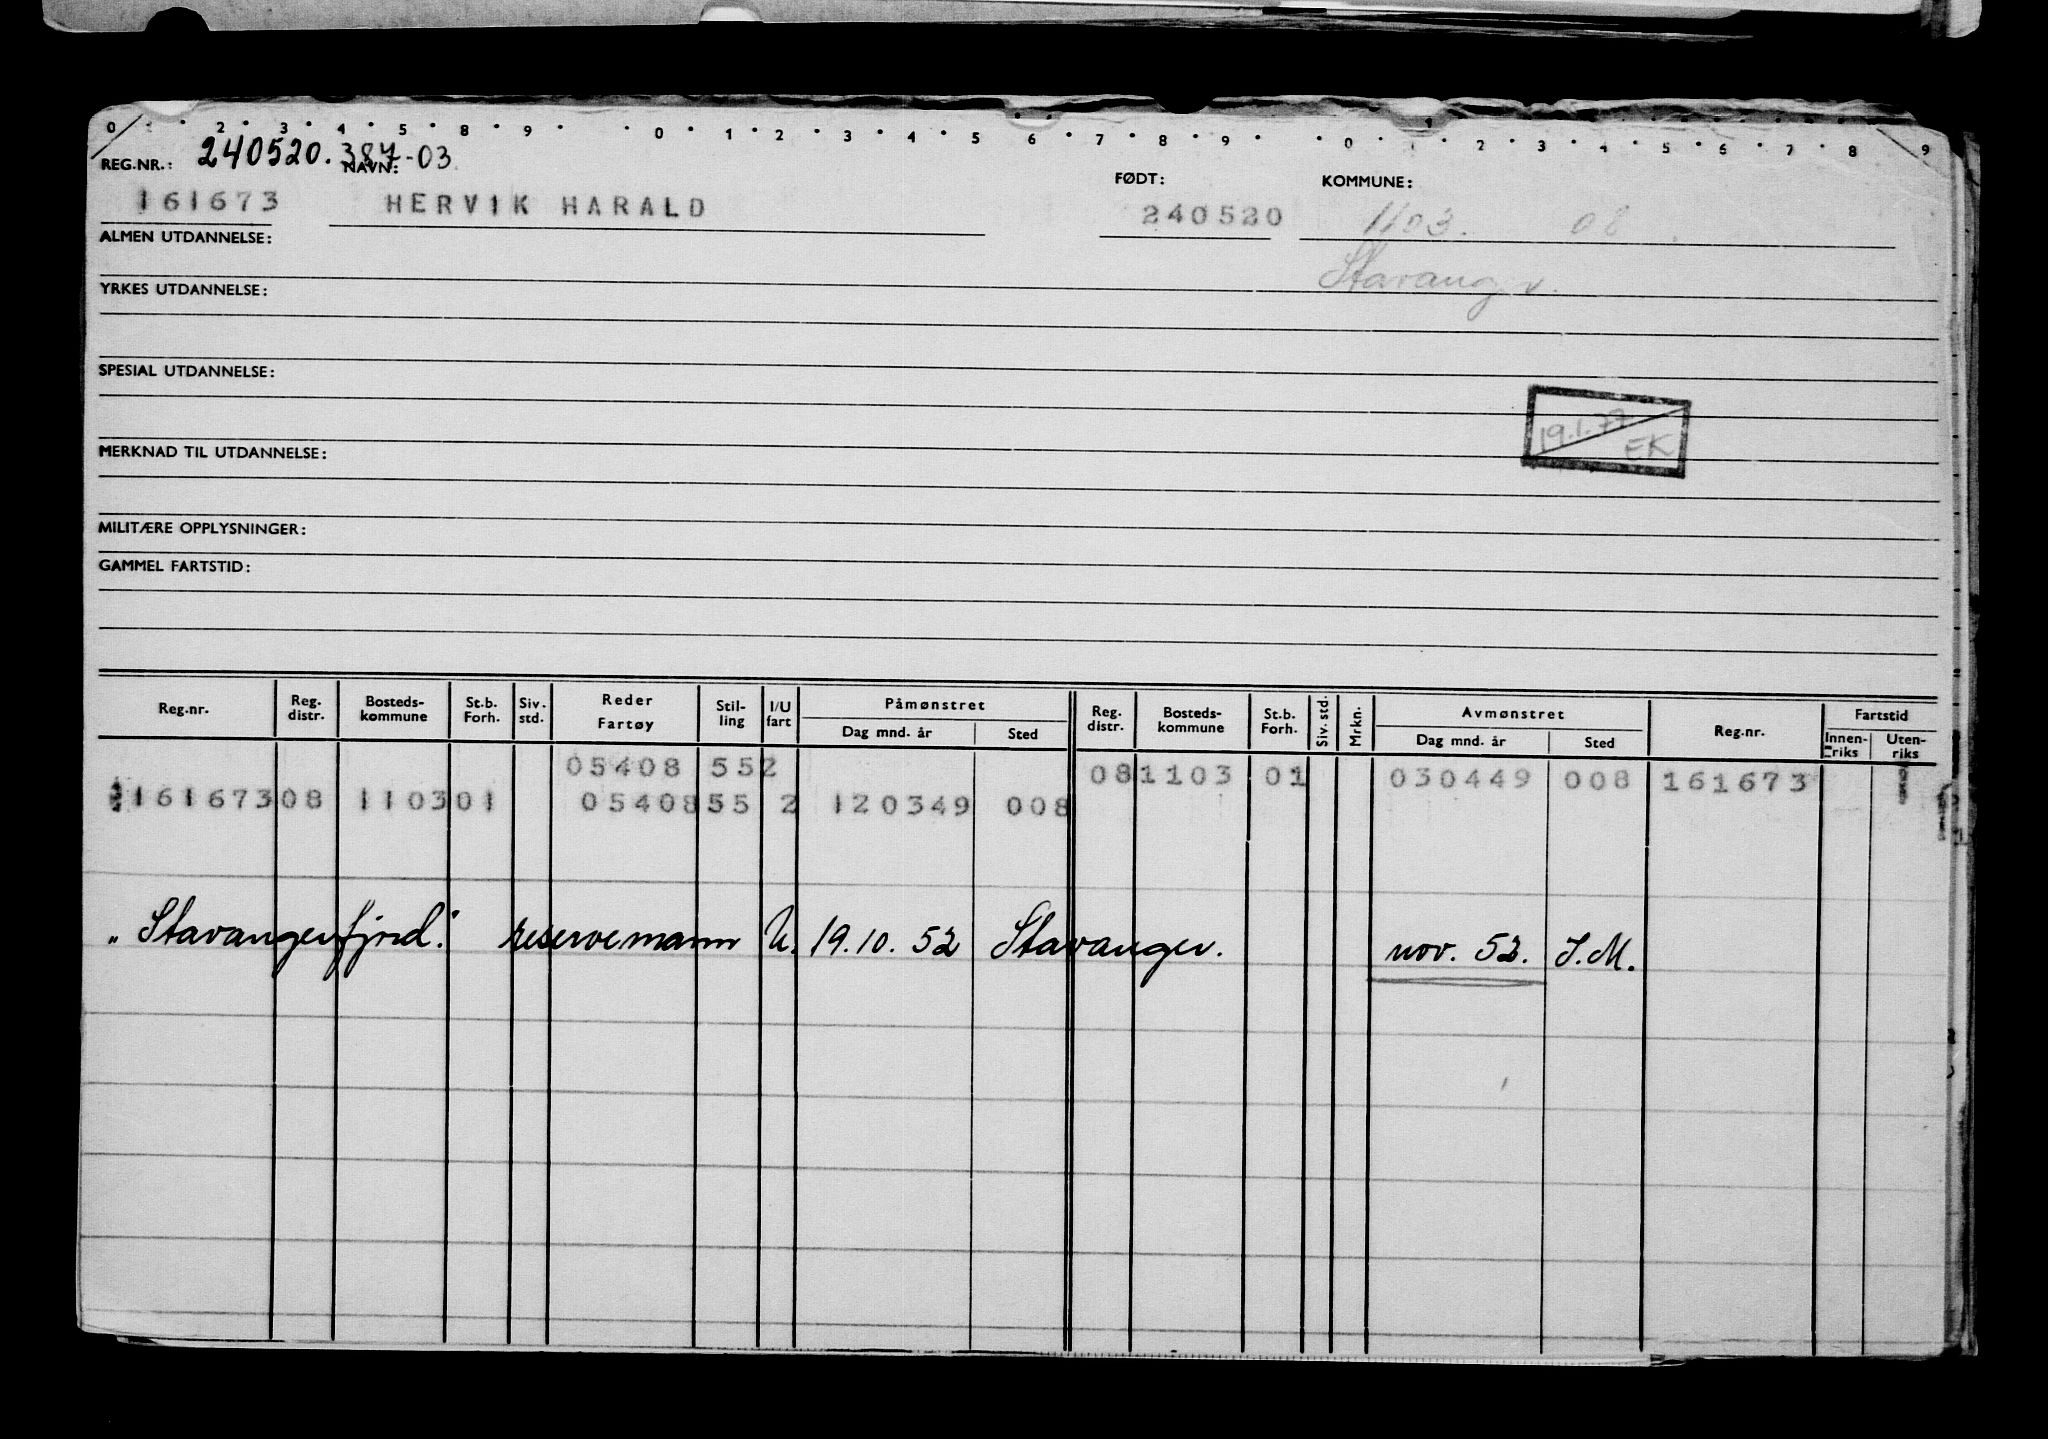 0 2 3 4 5 8 9 0 1 2 3 4 5 6 7 8 9 0 1 2 3 4 5 6 7 8 9
REG.NR.: 240520.387-03 NAVN: FØDT: KOMMUNE:
161673 HERVIK HARALD 240520 1103. 08
ALMEN UTDANNELSE:
Stavanger.
YRKES UTDANNELSE:
SPESIAL UTDANNELSE:
19.1.77 EK
MERKNAD TIL UTDANNELSE:
MILITÆRE OPPLYSNINGER:
GAMMEL FARTSTID:
Reg.nr. Reg. distr. Bosteds-kommune St.b. Forh. Siv. std. Reder Fartøy Stil-ling I/U fart Påmønstret Dag mnd. år Sted Reg. distr. Bosteds-kommune St.b. Forh. Siv. std. Mrkn. Avmønstret Dag mnd. år Sted Reg.nr. Fartstid Innen-riks Uten-riks
05408 552 081103 01 030449 008 161673
16167308 110301 0540855 2 120349 008
"Stavangerfjord." reservemann U. 19.10.52 Stavanger. nov. 52. I.M.